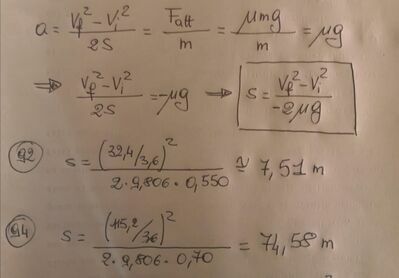 a = (Vf² - Vi²)/2S = Fatt/m = μmg/m = μg
⇒ (Vf² - Vi²)/2S = -μg → S = (Vf² - Vi²)/-2μg
92 S = (32,4/3,6)²/2·9,806·0,550 ≅ 7,51 m
94 S = (115,2/36)²/2·9,806·0,70 = 74,58 m